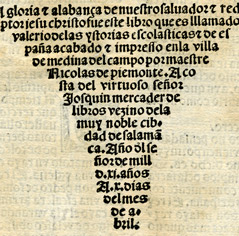 A gloria ⁊ alabança de nuestro saluador ⁊ red
ptor iesu christo fue este libro que es llamado
valerio delas ystorias escolasticas ⁊ de es
paña acabado ⁊ impresso en la villa
de medina del campo por maestre
Nicolas de piemonte. A co
sta del virtuoso señor
Josquin mercader de
libros vezino dela
muy noble cib-
dad de salamā
ca. Año ðl se
ñor de mill
d.xi. años
A.x. dias
del mes
de a-
bril.